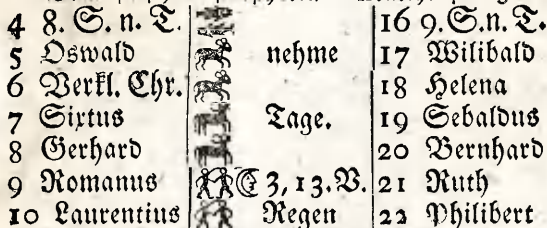 4 8. S. n. T. 16 9. S. n. T.
5 Oswald nehme 17 Wilibald
6 Verkl. Chr. 18 Helena
7 Sixtus Tage. 19 Sebaldus
8 Gerhard 20 Bernhard
9 Romanus ☾ 3, 13. V. 21 Ruth
10 Laurentius Regen 22 Philibert